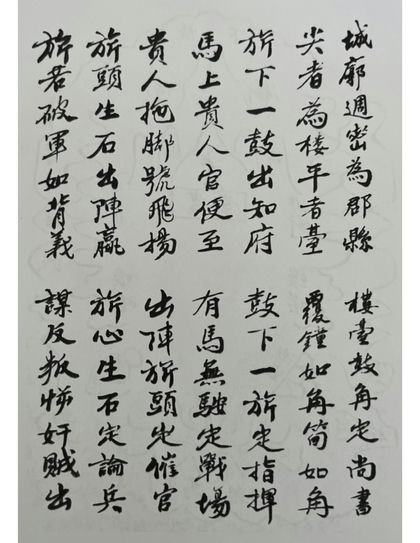 城廓週密為郡縣 樓臺鼓角定尚書
尖者為樓平者臺 覆鐘如角筍如角
旂下一鼓出知府 鼓下一旂定指揮
馬上貴人官便至 有馬無定戰場
貴人拖脚號飛揚 出陣旂頭定催官
旂頭生石出陣贏 旂心生石定論兵
旂若破軍如背義 謀反叛悖奸賊出